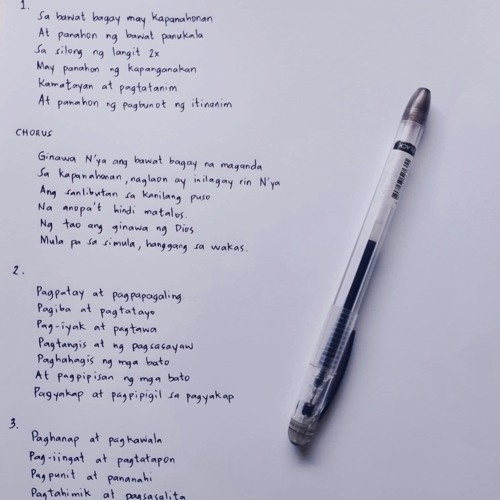 1.
Sa bawat bagay may kapanahonan
At panahon ng bawat panukala
Sa silong ng langit 2x
May panahon ng kapanganakan
Kamatayan at pagtatanim
At panahon ng pagbunot ng itinanim
CHORUS
Ginawa N'ya ang bawat bagay na maganda
Sa kapanahonan, naglaon ay inilagay rin N'ya
Ang sanlibutan sa kanilang puso
Na anopa't hindi matalos.
Ng tao ang ginawa ng Dios
Mula pa sa simula, hanggang sa wakas.
2.
Pagpatay at pagpapagaling
Pagiba at pagtatayo
Pag-iyak at pagtawa
Pagtangis at ng pagsasayaw
Paghahagis ng mga bato
At pagpipisan ng mga bato
Pagyakap at pagpipigil sa pagyakap
3.
Paghanap at pagkawala
Pag-iingat at pagtatapon
Pagpunit at pananahi
Pagtahimik at pagsasalita